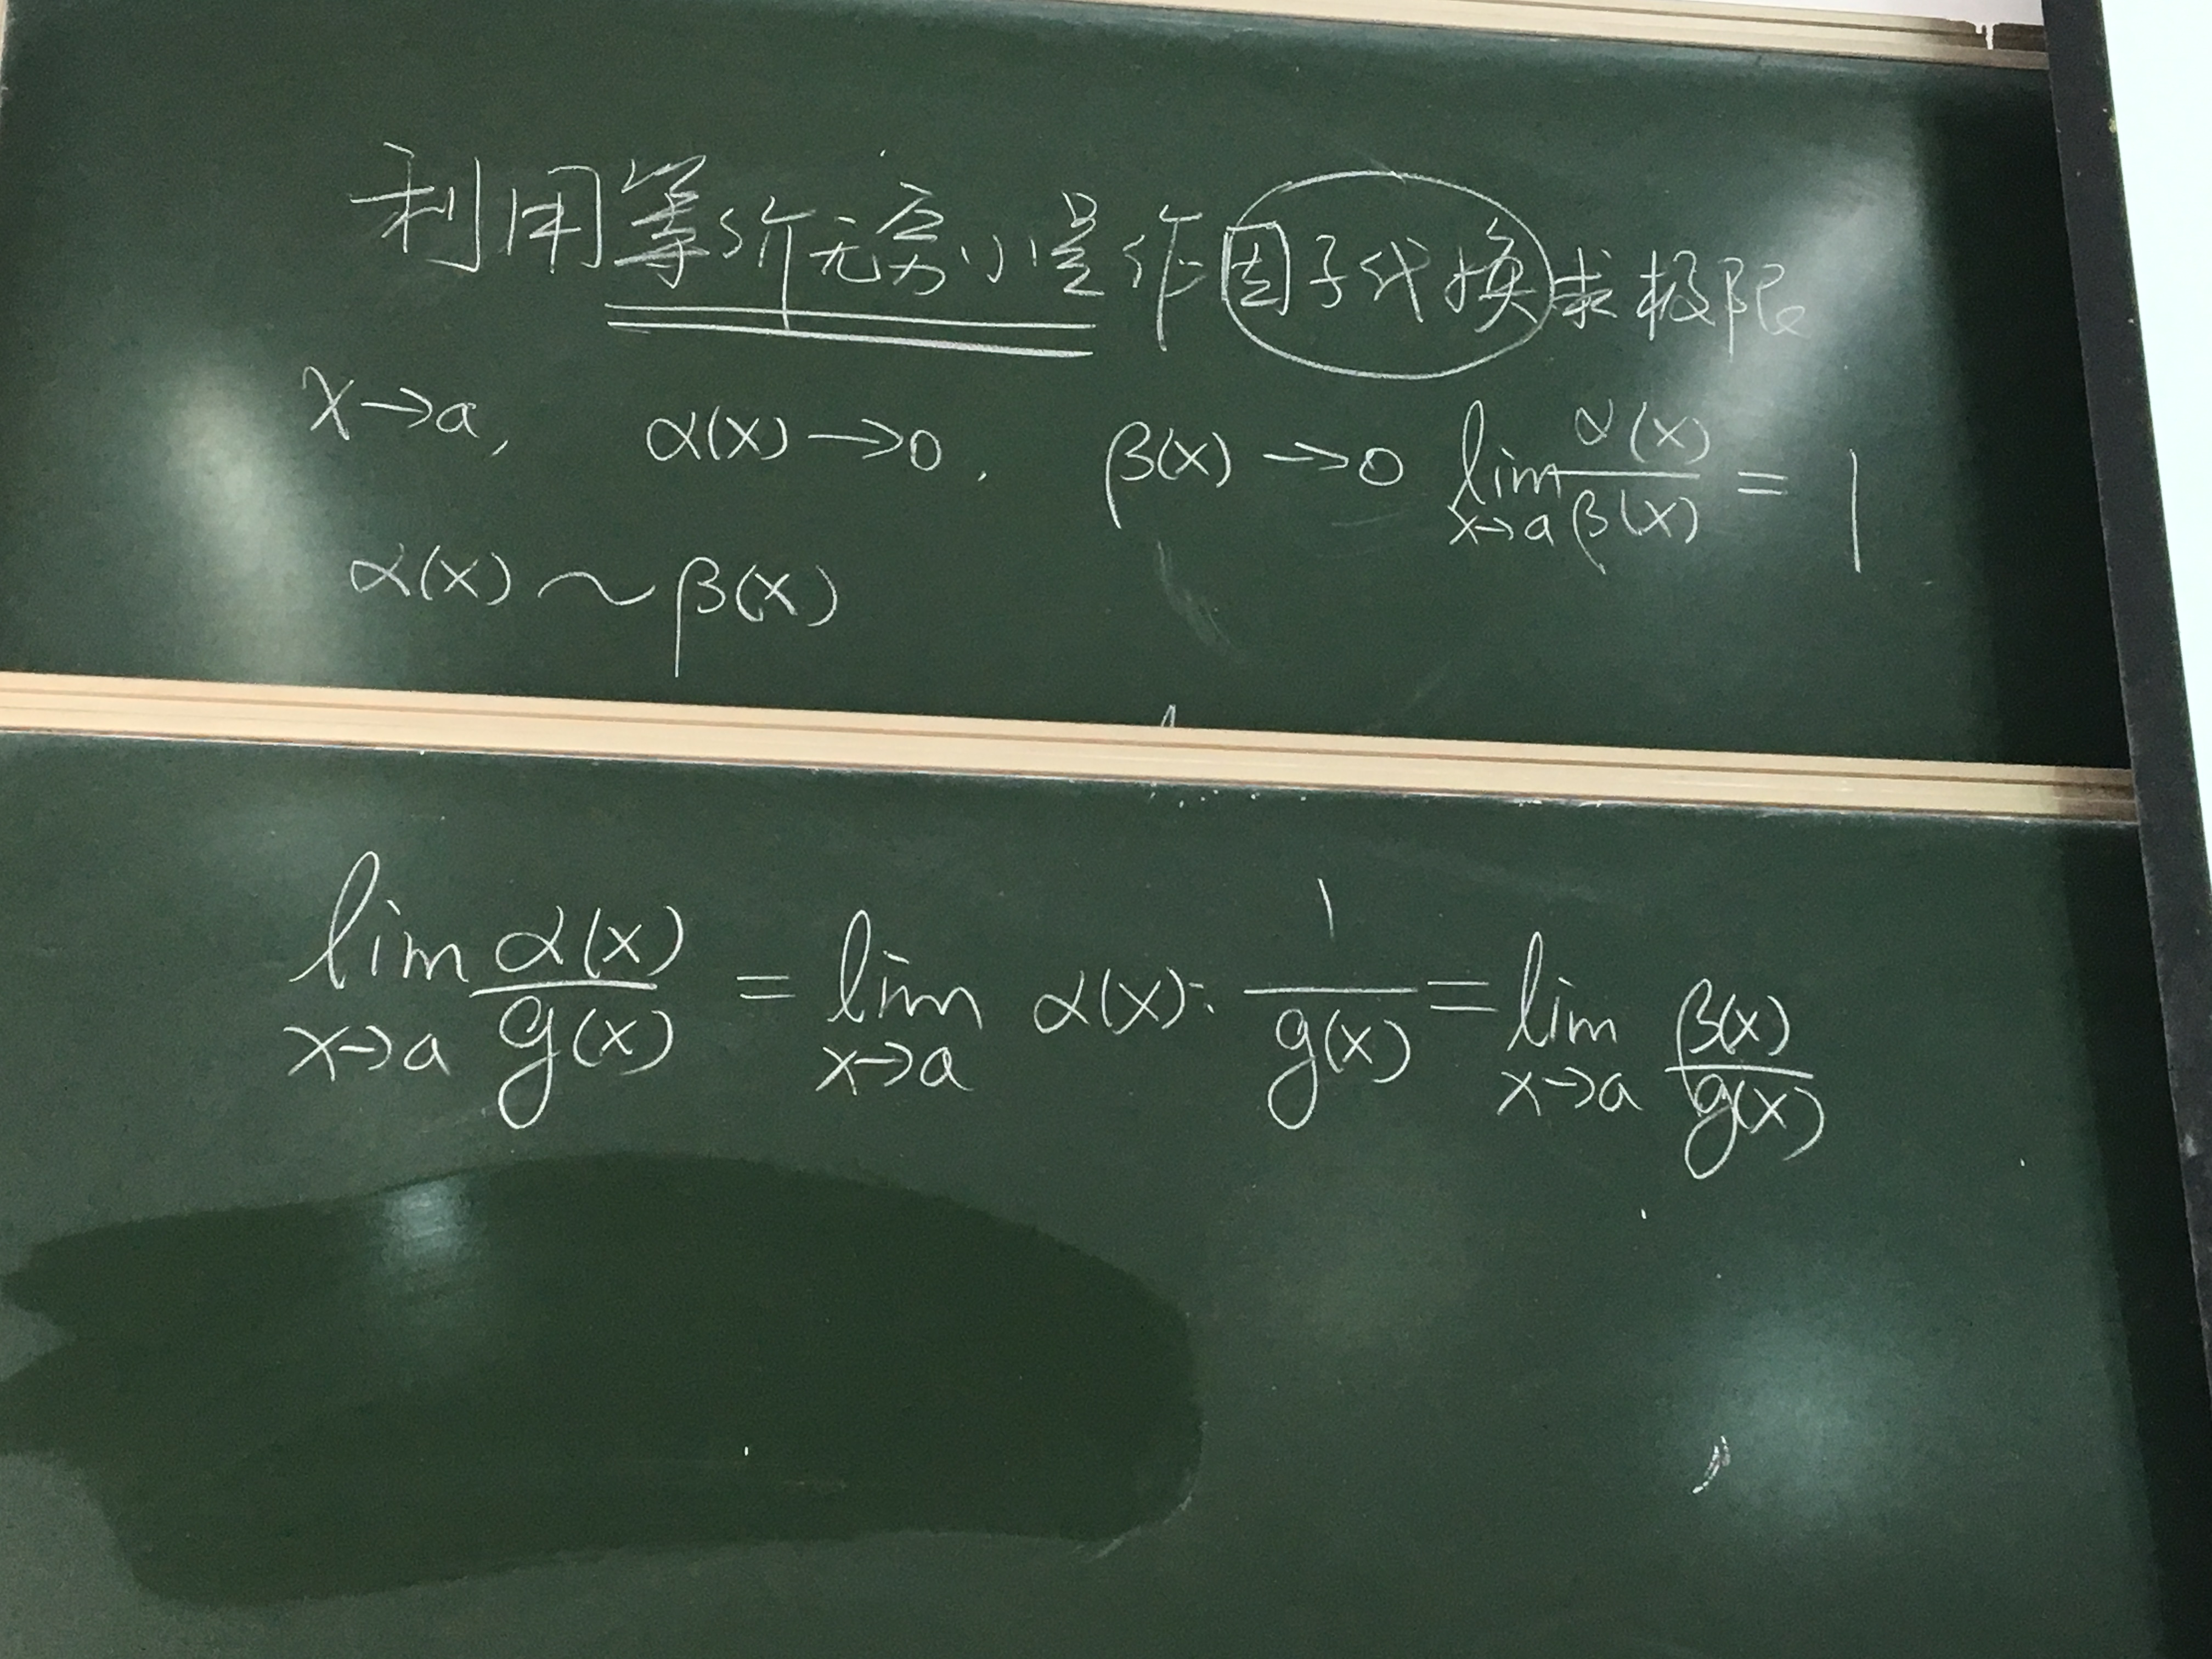 利用等价无穷小量作因子代换求极限
x→a, α(x)→0, β(x)→0 lim_{x→a} α(x)/β(x) = 1
α(x)~β(x)
lim_{x→a} α(x)/g(x) = lim_{x→a} α(x)· 1/g(x) = lim_{x→a} β(x)/g(x)